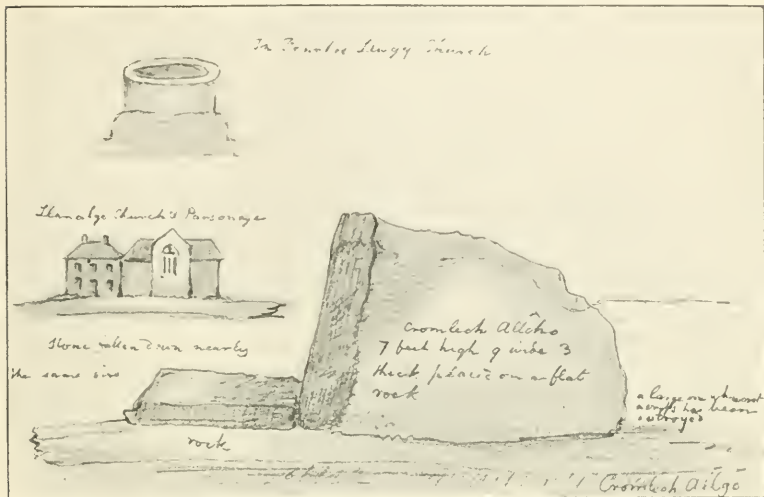 In Penrhos Llugy Church
Llanalgo Church & Parsonage
Stone fallen down nearly
the same size
Cromlech Allgho
7 feet high 9 wide 3
thick placed on a flat
rock
rock
a large one
across has been
destroyed
Cromlech Allgo